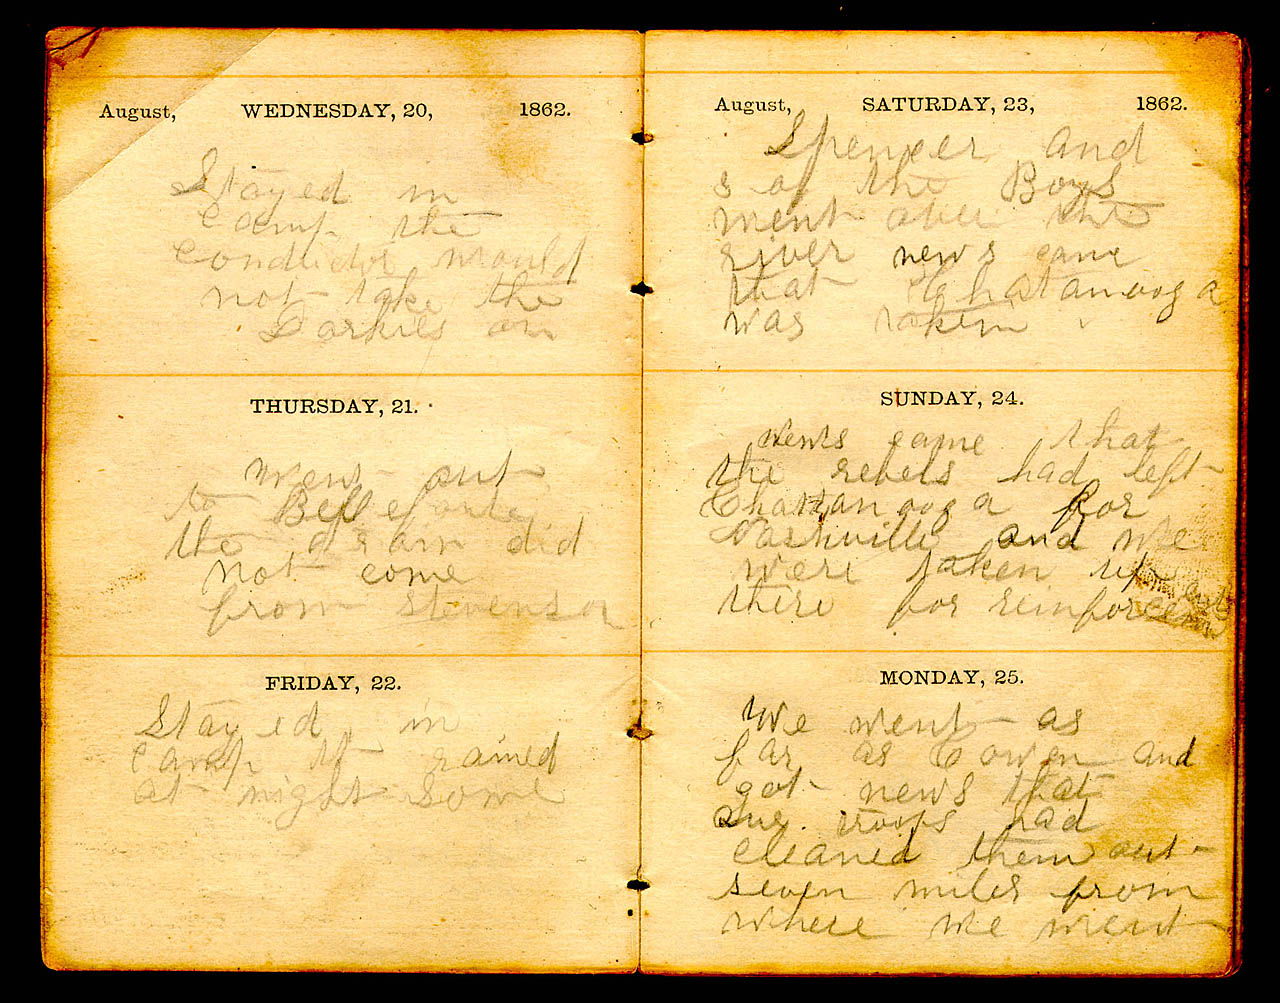 August, WEDNESDAY, 20, 1862.
Stayed in
camp the
conductor would
not take the
Darkies on
THURSDAY, 21.
went out
to Bellefonte
the train did
not come
from stevenson
FRIDAY, 22.
Stayed in
camp it rained
at night some
August, SATURDAY, 23, 1862.
Spencer and
5 of the Boys
went over the
river news came
that Chatanooga
was taken
SUNDAY, 24.
news came that
the rebels had left
Chattanooga for
Nashville and we
were taken up
there for reinforcem
MONDAY, 25.
We went as
far as Cowen and
got news that
our troops had
cleaned them out
seven miles from
where we went